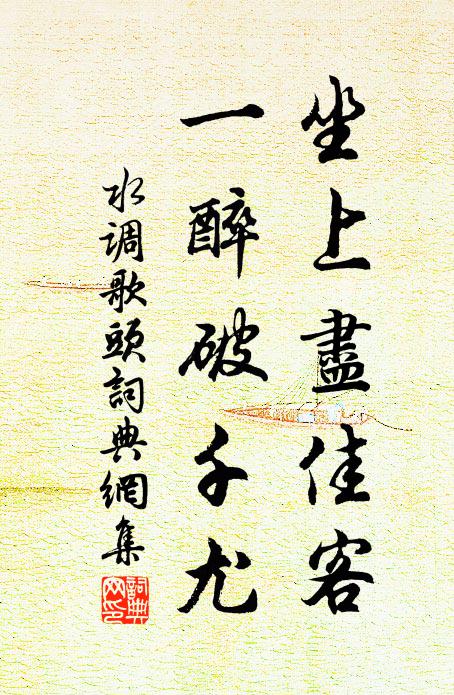 坐上盡佳客
一醉破千尤
水调歌頭詞典網集
詞典
网印